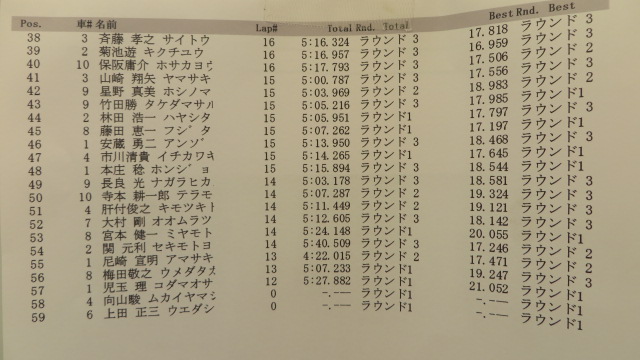 Pos. 車# 名前 Lap# Total Rnd. Total Best Rnd. Best
38 3 斉藤 孝之 サイトウ 16 5:16.324 ラウンド 3 17.818 ラウンド 3
39 2 菊池遊 キクチユウ 16 5:16.957 ラウンド 3 16.959 ラウンド 2
40 10 保阪庸介 ホサカヨウ 16 5:17.793 ラウンド 3 17.506 ラウンド 3
41 3 山崎 翔矢 ヤマサキ 15 5:00.787 ラウンド 3 17.556 ラウンド 2
42 9 星野 真美 ホシノマ 15 5:03.969 ラウンド 2 18.983 ラウンド1
43 9 竹田勝 タケダマサル 15 5:05.216 ラウンド 3 17.985 ラウンド 2
44 2 林田 浩一 ハヤシタ 15 5:05.951 ラウンド1 17.797 ラウンド 3
45 8 藤田 恵一 フジタ 15 5:07.262 ラウンド1 17.197 ラウンド1
46 1 安蔵 勇二 アンゾ 15 5:13.950 ラウンド 3 18.468 ラウンド 3
47 4 市川清貴 イチカワキ 15 5:14.265 ラウンド1 17.645 ラウンド1
48 1 本庄 稔 ホンジョ 15 5:15.894 ラウンド 3 18.544 ラウンド1
49 9 長良 光 ナガラヒカ 14 5:03.178 ラウンド 3 18.581 ラウンド 3
50 10 寺本 耕一郎 テラモ 14 5:07.287 ラウンド 2 19.324 ラウンド 3
51 4 肝付俊之 キモツキト 14 5:11.449 ラウンド 2 19.121 ラウンド 3
52 7 大村 剛 オオムラツ 14 5:12.605 ラウンド 3 18.142 ラウンド 3
53 8 宮本 健一 ミヤモト 14 5:24.148 ラウンド1 20.055 ラウンド1
54 2 関 元利 セキモトヨ 14 5:40.509 ラウンド 3 17.246 ラウンド 2
55 1 尼崎 宣明 アマサキ 13 4:22.015 ラウンド 2 17.471 ラウンド 2
56 8 梅田敬之 ウメダタカ 13 5:07.233 ラウンド1 19.247 ラウンド 3
57 1 児玉 理 コダマオサ 12 5:27.882 ラウンド1 21.052 ラウンド1
58 4 向山駿 ムカイヤマシ 0 -.--- ラウンド1 -.--- ラウンド1
59 6 上田 正三 ウエダシ 0 -.--- ラウンド1 -.--- ラウンド1